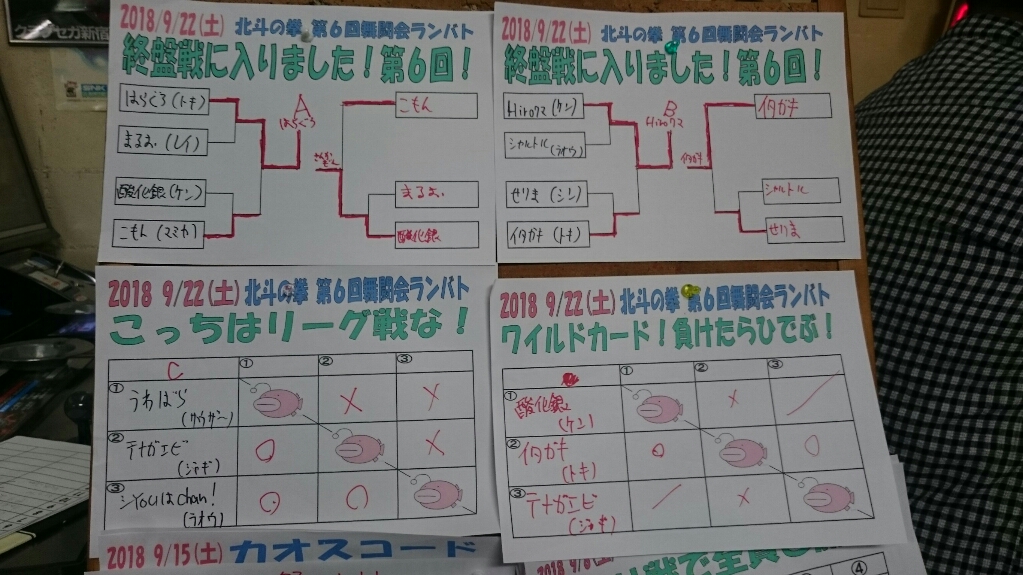 2018 9/22(土) 北斗の拳 第6回舞闘会ランバト
終盤戦に入りました!第6回!
はらぐろ(トキ)
まるお.(レイ)
酸化銀(ケン)
こもん(マミヤ)
A
はらぐろ
こもん
まるお.
酸化銀
2018 9/22(土) 北斗の拳 第6回舞闘会ランバト
終盤戦に入りました!第6回!
Hiroクマ(ケン)
シャルトル(ラオウ)
せりま(シン)
イタガキ(トキ)
B
Hiroクマ
イタガキ
イタガキ
シャルトル
せりま
2018 9/22(土) 北斗の拳 第6回舞闘会ランバト
こっちはリーグ戦な!
C ① ② ③
① うわばら(サウザー) × ×
② テナガエビ(ジャギ) ○ ×
③ シYouはchan!(ラオウ) ○ ○
2018 9/22(土) 北斗の拳 第6回舞闘会ランバト
ワイルドカード!負けたらひでぶ!
① ② ③
① 酸化銀(ケン) × /
② イタガキ(トキ) ○ ○
③ テナガエビ(ジャギ) / ×
2018 9/15(土) カオスコード
④